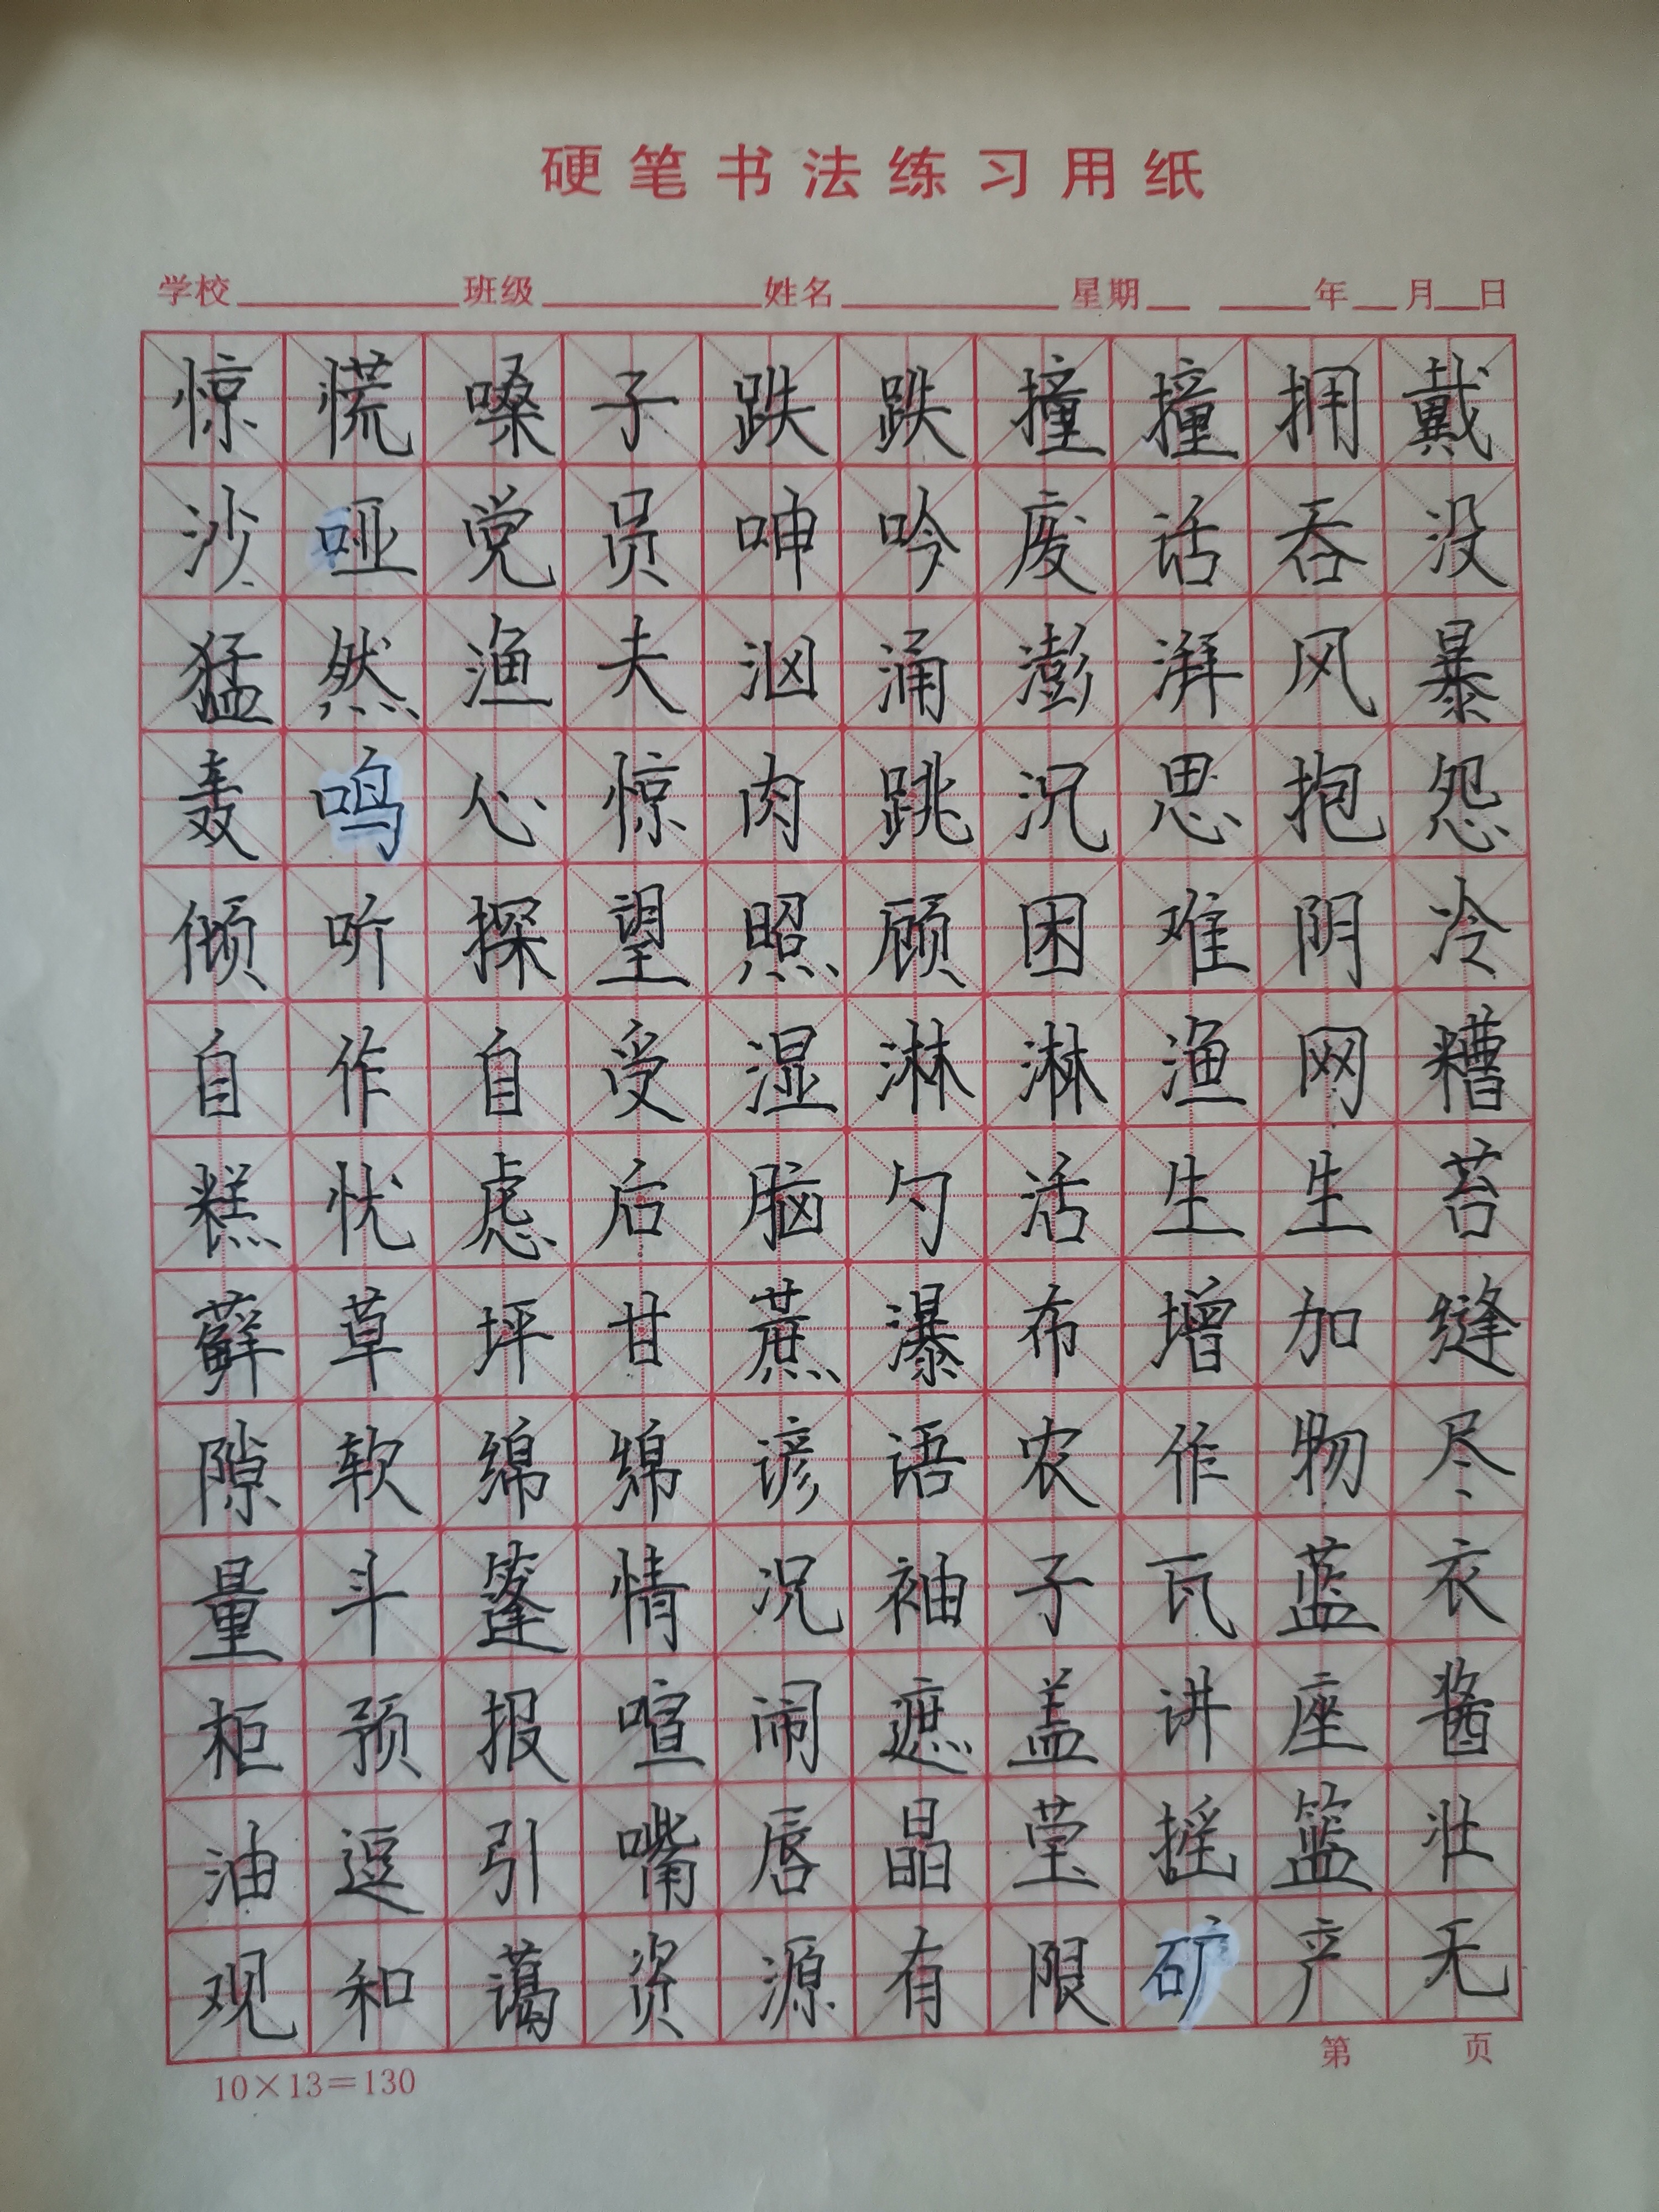 硬笔书法练习用纸
学校 班级 姓名 星期 年 月 日
惊慌嗓子跌跌撞撞拥戴
沙哑党员呻吟废话吞没
猛然渔夫汹涌澎湃风暴
轰鸣心惊肉跳沉思抱怨
倾听探望照顾困难阴冷
自作自受湿淋淋渔网糟
糕忧虑后脑勺活生生苔
藓草坪甘蔗瀑布增加缝
隙软绵绵谚语农作物尽
量斗篷情况袖子瓦蓝衣
柜预报喧闹遮盖讲座酱
油逗引嘴唇晶莹摇篮壮
观和蔼资源有限矿产无
10×13=130
第 页